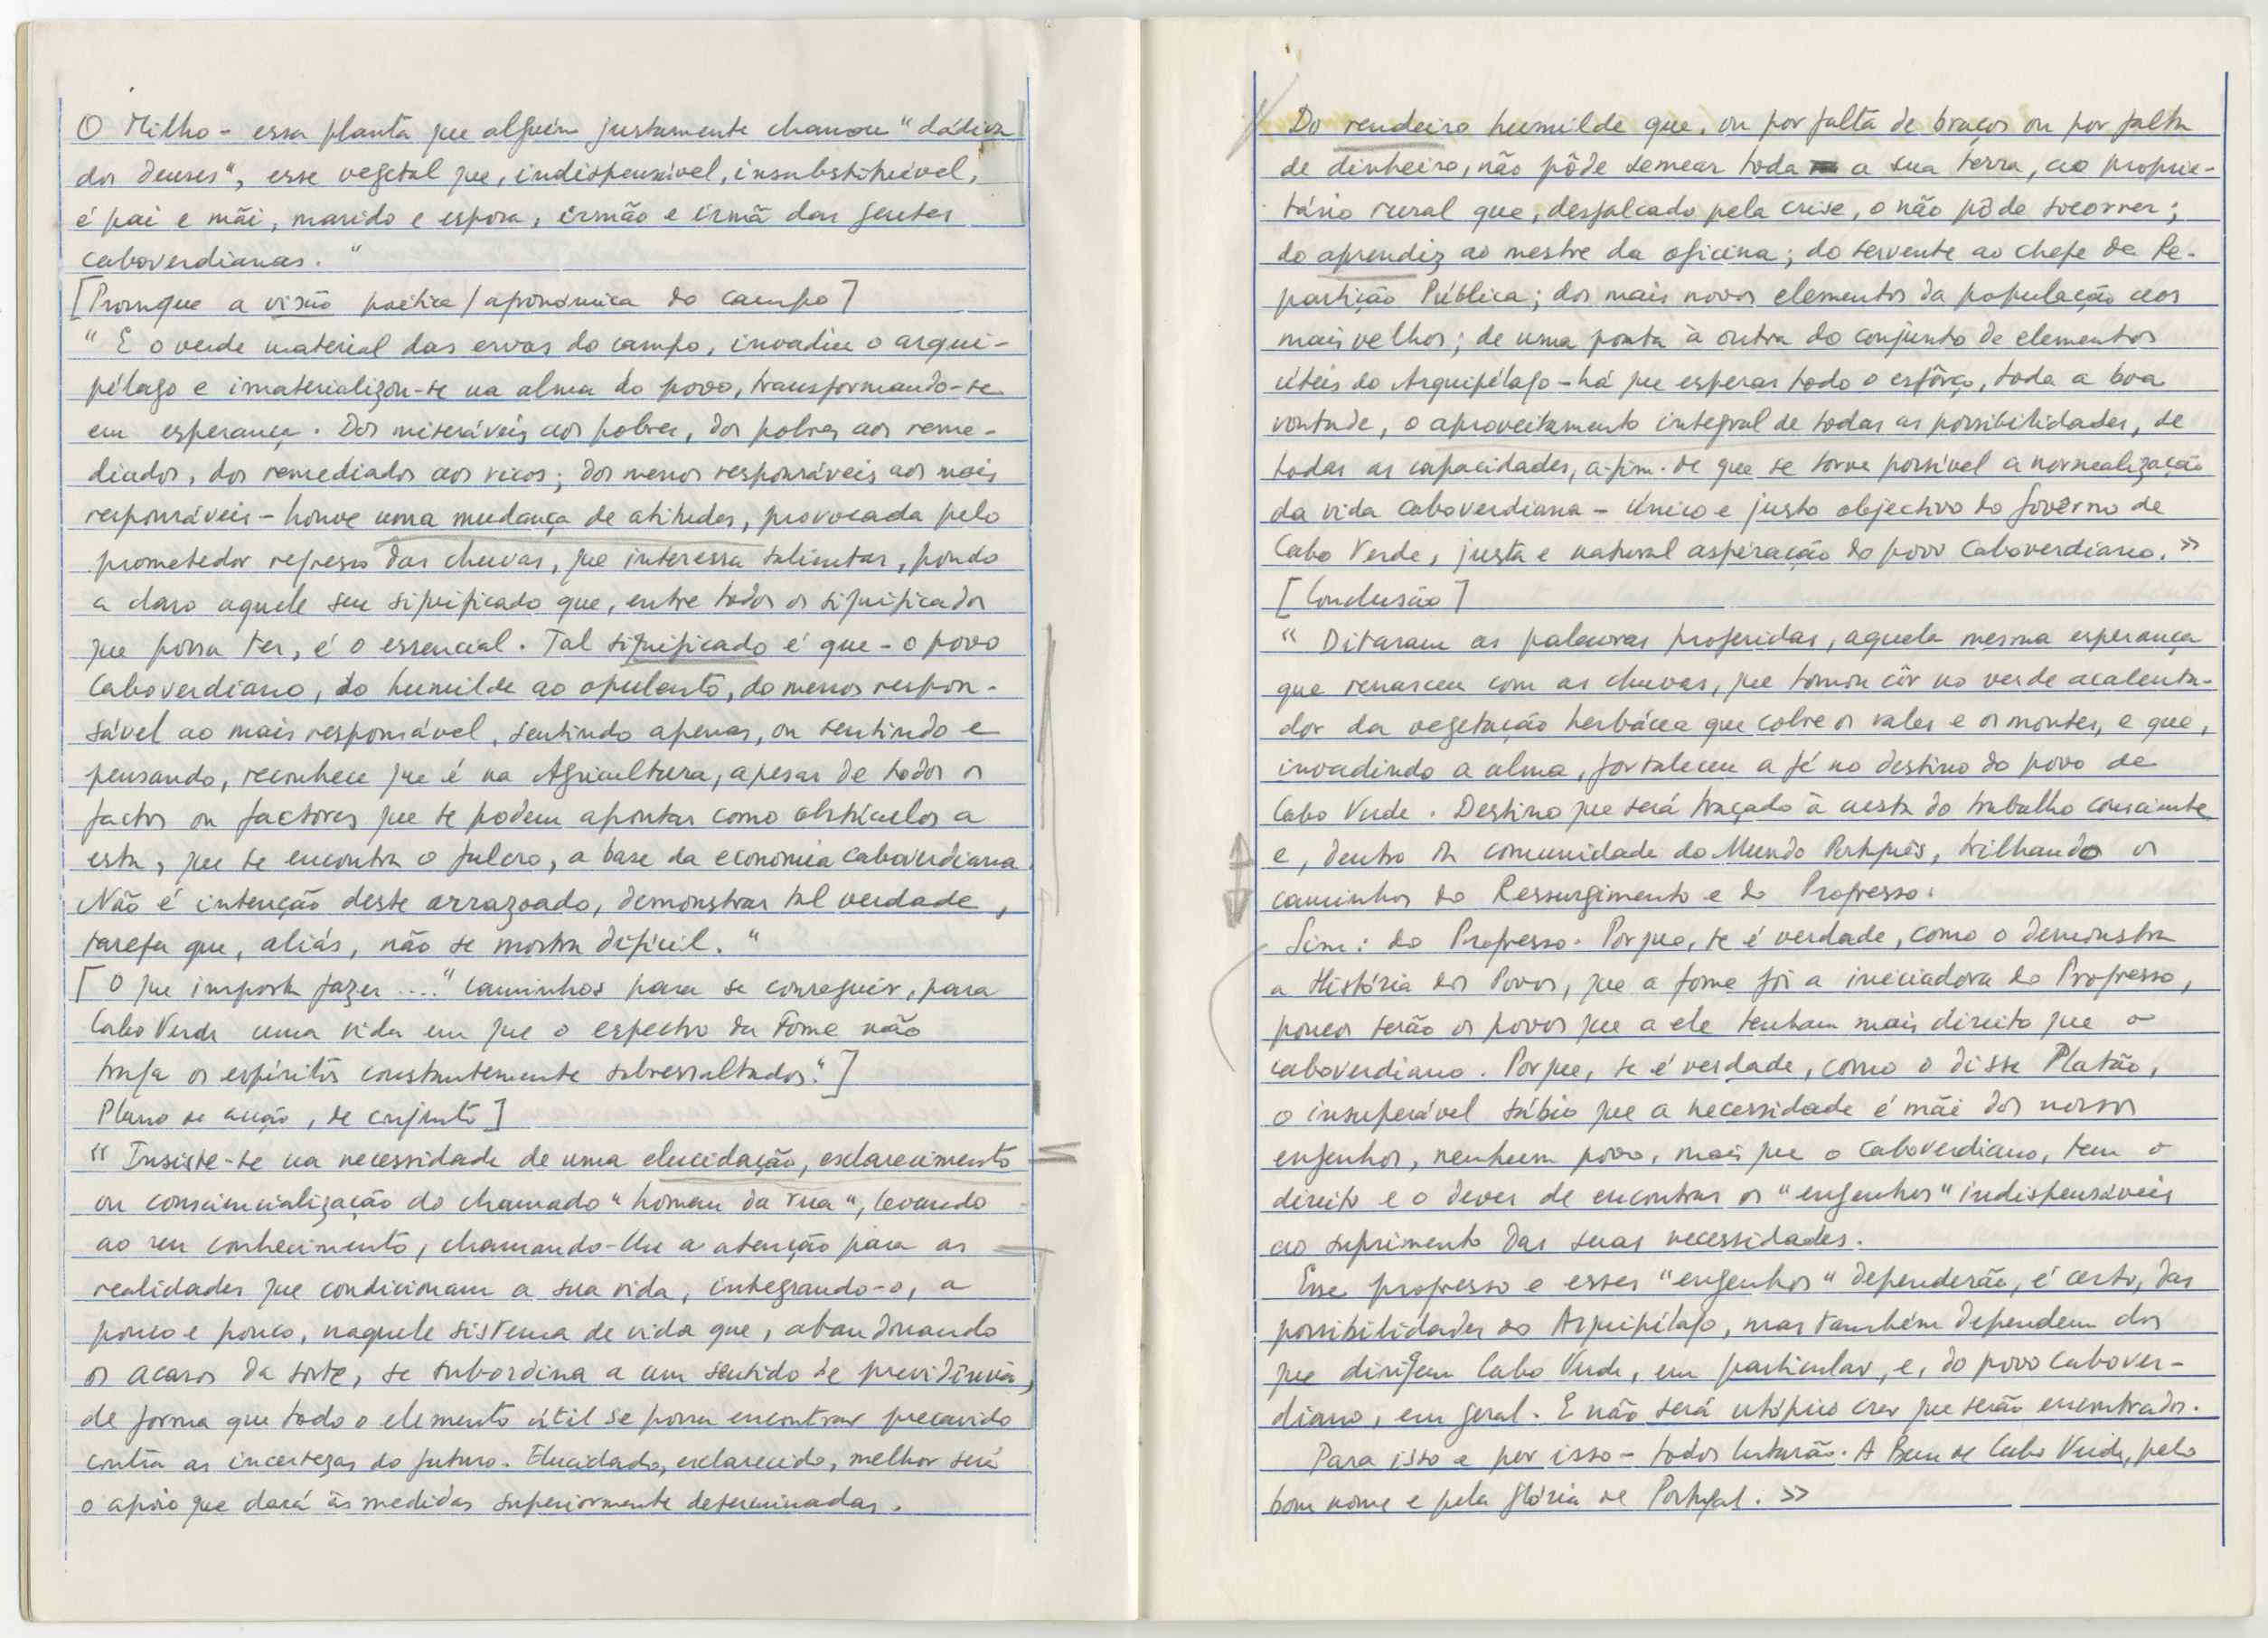 O Milho - essa planta que alguém justamente chamou "dádiva
dos deuses", esse vegetal que, indispensável, insubstituível,
é pai e mãi, marido e esposa, irmão e irmã das gentes
caboverdianas."
[Prossegue a visão poética/agronómica do campo]
"E o verde material das ervas do campo, invadiu o arqui-
pélago e imaterializou-se na alma do povo, transformando-se
em esperança. Dos miseráveis aos pobres, dos pobres aos reme-
diados, dos remediados aos ricos; dos menos responsáveis aos mais
responsáveis - houve uma mudança de atitudes, provocada pelo
prometedor regresso das chuvas, que interessa salientar, pondo
a claro aquele seu significado que, entre todos os significados
que possa ter, é o essencial. Tal significado é que - o povo
Caboverdiano, do humilde ao opulento, do menos respon-
sável ao mais responsável, sentindo apenas, ou sentindo e
pensando, reconhece que é na Agricultura, apesar de todos os
factos ou factores que se podem apontar como obstáculos a
esta, que se encontra o fulcro, a base da economia caboverdiana.
Não é intenção deste arrazoado, demonstrar tal verdade,
tarefa que, aliás, não se mostra difícil."
[O que importa fazer...." caminhos para se conseguir, para
Cabo Verde uma vida em que o espectro da Fome não
traga os espíritos constantemente sobressaltados."]
Plano de acção, de conjunto]
"Insiste-se na necessidade de uma elucidação, esclarecimento
ou consciencialização do chamado "homem da rua", levando
ao seu conhecimento, chamando-lhe a atenção para as
realidades que condicionam a sua vida, integrando-o, a
pouco e pouco, naquele sistema de vida que, abandonando
os acasos da sorte, se subordina a um sentido de previdência,
de forma que todo o elemento útil se possa encontrar precavido
contra as incertezas do futuro. Elucidado, esclarecido, melhor será
o apoio que dará às medidas superiormente determinadas.
Do rendeiro humilde que, ou por falta de braços ou por falta
de dinheiro, não pôde semear toda a sua terra, ao proprie-
tário rural que, desfalcado pela crise, o não pôde socorrer;
do aprendiz ao mestre da oficina; do servente ao chefe de Re-
partição Pública; dos mais novos elementos da população aos
mais velhos; de uma ponta à outra do conjunto de elementos
úteis do Arquipélago - há que esperar todo o esfôrço, toda a boa
vontade, o aproveitamento integral de todas as possibilidades, de
todas as capacidades, a-fim-de que se torne possível a normalização
da vida caboverdiana - único e justo objectivo do Govêrno de
Cabo Verde, justa e natural aspiração do povo Caboverdiano.»
[Conclusão]
"Ditaram as palavras proferidas, aquela mesma esperança
que renasceu com as chuvas, que tomou côr no verde acalenta-
dor da vegetação herbácea que cobre os vales e os montes, e que,
invadindo a alma, fortaleceu a fé no destino do povo de
Cabo Verde. Destino que será traçado à custa do trabalho consciente
e, dentro da comunidade do Mundo Português, trilhando os
caminhos do Ressurgimento e do Progresso.
Sim: do Progresso. Porque, se é verdade, como o demonstra
a História dos Povos, que a fome foi a iniciadora do Progresso,
poucos serão os povos que a ele tenham mais direito que o
caboverdiano. Porque, se é verdade, como o disse Platão,
o insuperável sábio que a necessidade é mãi dos nossos
engenhos, nenhum povo, mais que o Caboverdiano, tem o
direito e o dever de encontrar os "engenhos" indispensáveis
ao suprimento das suas necessidades.
Esse progresso e esses "engenhos" dependerão, é certo, das
possibilidades do Arquipélago, mas também dependem dos
que dirigem Cabo Verde, em particular, e, do povo cabover-
diano, em geral. E não será utópico crer que serão encontrados.
Para isso e por isso - todos lutarão. A Bem de Cabo Verde, pelo
bom nome e pela glória de Portugal.»